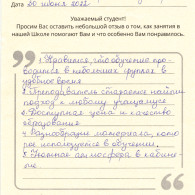 Дата 30 июня 2022
Уважаемый студент!
Просим Вас оставить небольшой отзыв о том, как занятия в
нашей Школе помогают Вам и что особенно Вам понравилось.
1. Нравится, что обучение про-
водится в небольших группах в
удобное время
2. Преподаватель старается найти
подход к любому учащемуся
3. Доступная цена и качество
образования
4. Разнообразие материала, кото-
рое используется в обучении.
5. Уютная атмосфера в кабине-
те